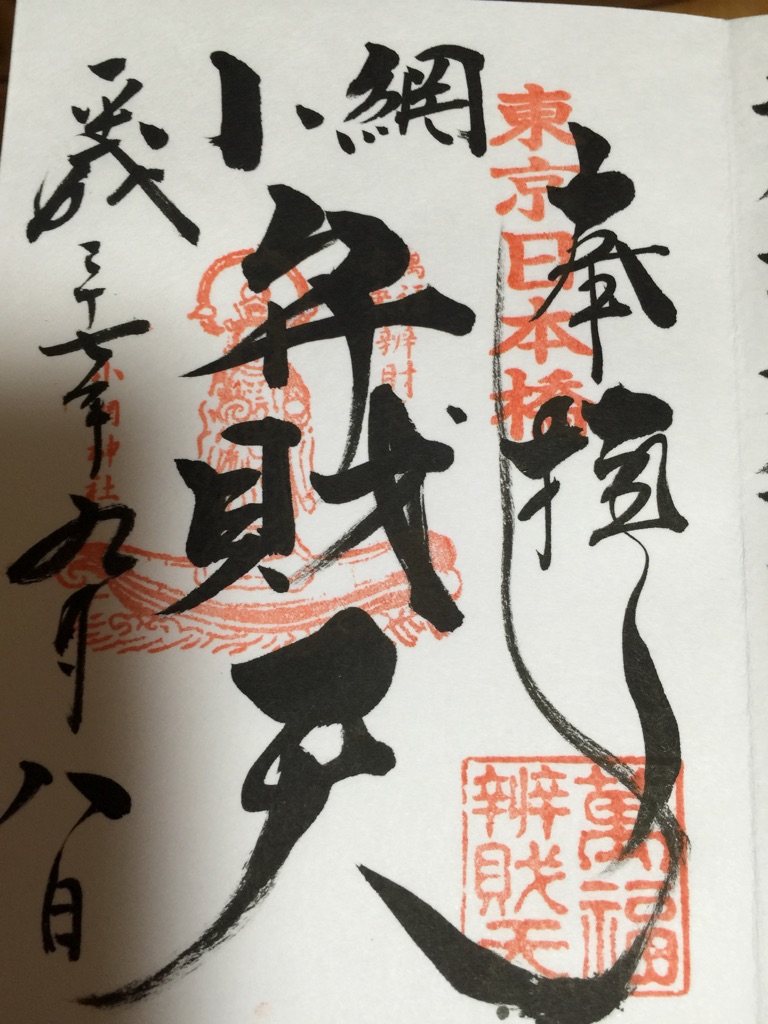 東京日本橋
奉拝
小網
弁財天
平成二十七年九月八日
小網神社
萬福
辨財天